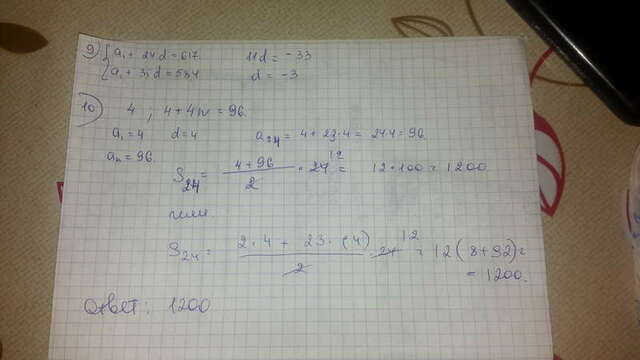 9) { a₁ + 24d = 617 11d = -33
a₁ + 35d = 584 d = -3
10) 4 ; 4+4n = 96.
a₁ = 4 d = 4 a₂₄ = 4 + 23·4 = 24·4 = 96.
aₙ = 96.
S₂₄ = (4+96)/2 · 24 12 = 12·100 = 1200.
или
S₂₄ = (2·4 + 23·(4))/2 24 12 = 12(8+92) =
= 1200.
Ответ: 1200